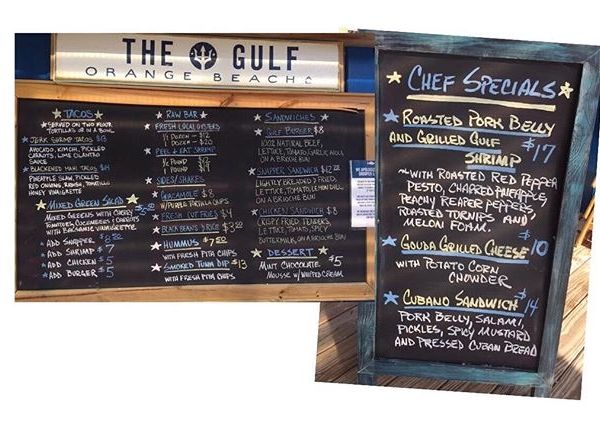 THE GULF
ORANGE BEACH
TACOS
SERVED ON TWO FLOUR
TORTILLAS OR IN A BOWL
JERK SHRIMP TACOS $13
AVOCADO, KIMCHI, PICKLED
CARROTS, LIME CILANTRO
SAUCE
BLACKENED MAHI TACOS $14
PINEAPPLE SLAW, PICKLED
RED ONIONS, RADISH, TOMATILLO
HONEY VINAIGRETTE
MIXED GREEN SALAD
MIXED GREENS WITH CHERRY
TOMATOES, CUCUMBERS & CARROTS
WITH BALSAMIC VINAIGRETTE
ADD SNAPPER $8
ADD SHRIMP $7
ADD CHICKEN $5
ADD BURGER $5
RAW BAR
FRESH LOCAL OYSTERS
1/2 DOZEN - $12
1 DOZEN - $20
PEEL & EAT SHRIMP
1/2 POUND $12
1 POUND
SIDES/SHARES
GUACAMOLE $8
W/FLOUR TORTILLA CHIPS
FRESH CUT FRIES $4
BLACK BEANS & RICE $3
HUMMUS $7
WITH FRESH PITA CHIPS
SMOKED TUNA DIP $13
WITH FRESH PITA CHIPS
SANDWICHES
GULF BURGER $8
100% NATURAL BEEF,
LETTUCE, TOMATO, GARLIC AIOLI
ON A BRIOCHE BUN
SNAPPER SANDWICH $12
LIGHTLY BREADED & FRIED,
LETTUCE, TOMATO, LEMON DILL
ON A BRIOCHE BUN
CHICKEN SANDWICH $8
CRISPY FRIED TENDERS,
LETTUCE, TOMATO, SPICY
BUTTERMILK, ON A BRIOCHE BUN
DESSERT
MINT CHOCOLATE $5
MOUSSE W/WHIPPED CREAM
CHEF SPECIALS
ROASTED PORK BELLY
AND GRILLED GULF
SHRIMP $17
~WITH ROASTED RED PEPPER
PESTO, CHARRED PINEAPPLE,
PEACHY REAPER PEPPERS,
ROASTED TURNIPS AND
MELON FOAM.
GOUDA GRILLED CHEESE $10
WITH POTATO CORN
CHOWDER
CUBANO SANDWICH $14
PORK BELLY, SALAMI,
PICKLES, SPICY MUSTARD
AND PRESSED CUBAN BREAD